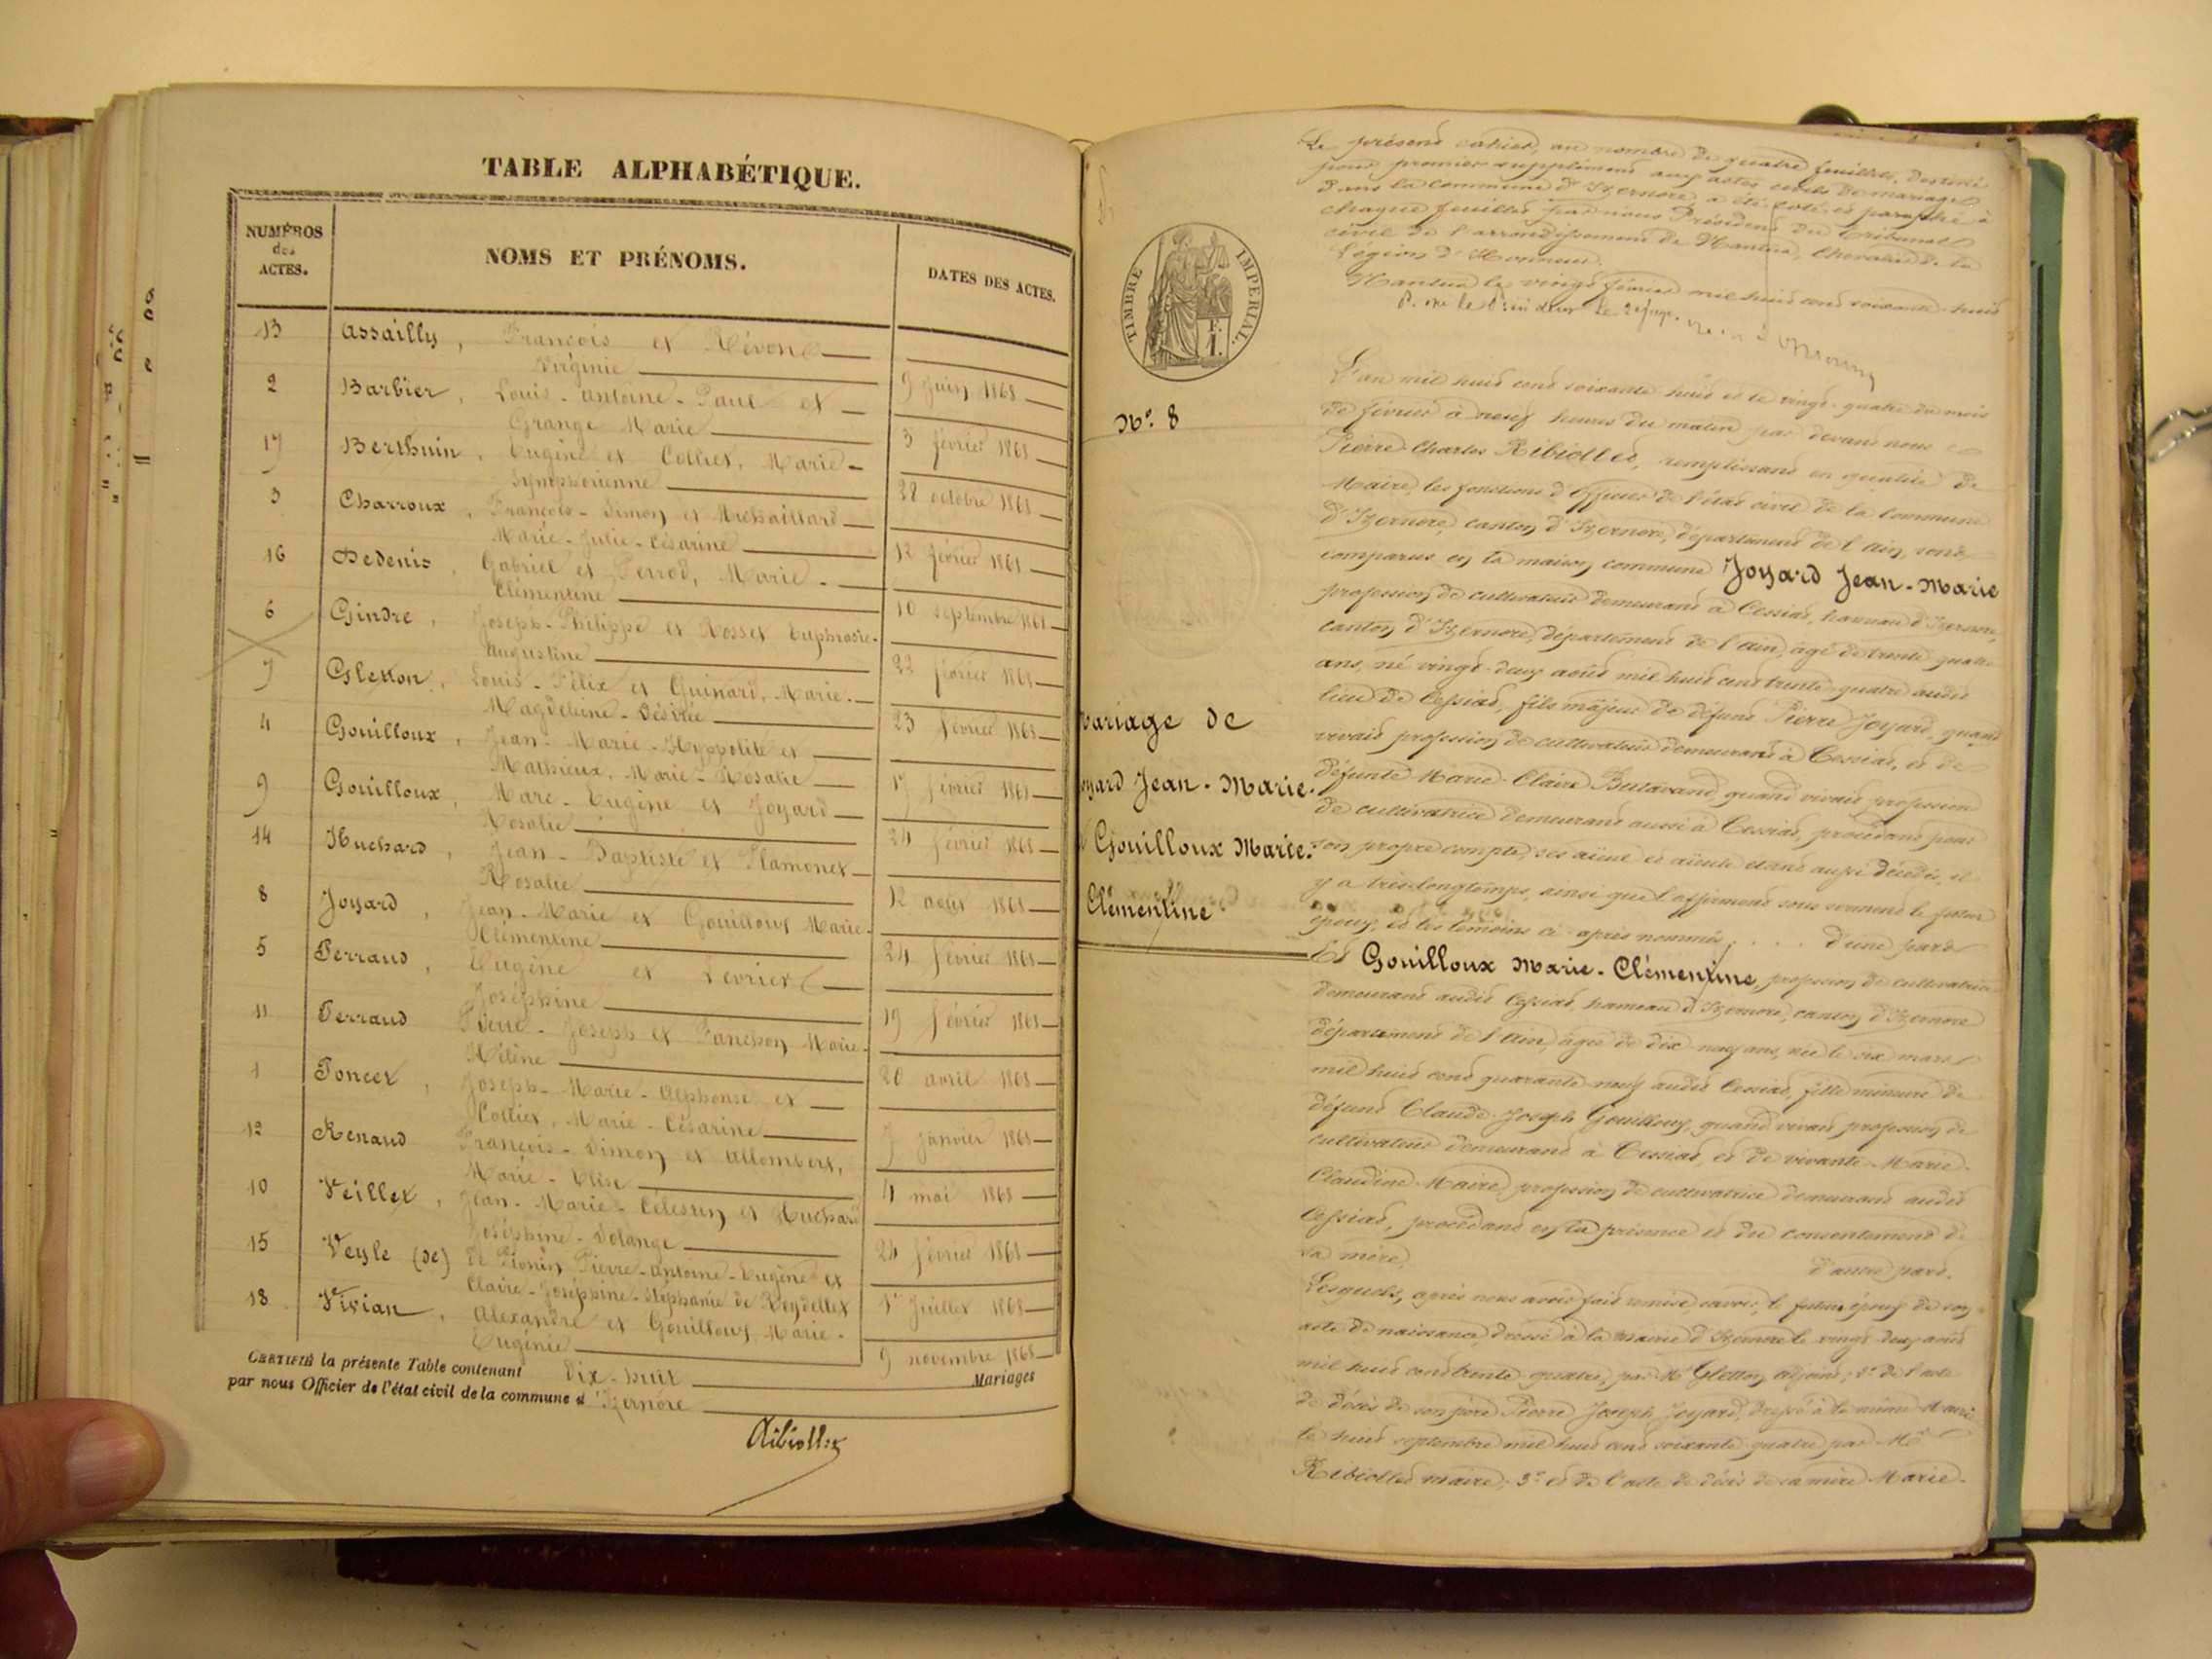 TABLE ALPHABÉTIQUE.
NUMÉROS des ACTES.
NOMS ET PRÉNOMS.
DATES DES ACTES.
13 Assailly, François et Révond
Virginie 9 Juin 1868
2 Barbier, Louis-Antoine-Paul et
Grange Marie 3 février 1868
17 Berthuin, Eugène et Collet, Marie-
Symphorienne 28 octobre 1868
3 Charroux, François-Simon et Michaillard
Marie-Julie-Césarine 12 février 1868
16 Dedenis, Gabriel et Perrod, Marie-
Clémentine 10 septembre 1868
6 Gindre, Joseph-Philippe et Rosset Euphrasie-
Augustine 22 février 1868
7 Gletton, Louis-Félix et Guinard, Marie-
Magdeleine-Désirée 23 février 1868
4 Gouilloux, Jean-Marie-Hyppolite et
Mathieux, Marie-Rosalie 17 février 1868
9 Gouilloux, Marc-Eugène et Joyard
Rosalie 24 février 1868
14 Huchard, Jean-Baptiste et Flamonet
Rosalie 12 août 1868
8 Joyard, Jean-Marie et Gouilloux Marie-
Clémentine 24 février 1868
5 Perraud, Eugène et Levrier
Joséphine 19 février 1868
11 Perraud Pierre-Joseph et Fanchon Marie-
Hélène 20 avril 1868
1 Poncet, Joseph-Marie-Alphonse et
Collet, Marie-Césarine 7 janvier 1868
12 Renaud François-Simon et Allombert,
Marie-Elise 4 mai 1868
10 Veillet, Jean-Marie-Célestin et Huchard
Joséphine-Solange 24 février 1868
15 Veyle (de) de Pionin Pierre-Antoine-Eugène et
Claire-Joséphine-Stéphanie de Reydellet 1er Juillet 1868
18 Vivian, Alexandre et Gouilloux, Marie-
Eugénie 9 novembre 1868
CERTIFIÉ la présente Table contenant Dix-huit Mariages
par nous Officier de l'état civil de la commune d'Izernore
Ribiollet
Le présent cahier, au nombre de quatre feuillets, destiné
pour premier supplément aux actes civils de mariage
dans la commune d'Izernore, a été coté et paraphé à
chaque feuillet par nous Président du Tribunal
civil de l'arrondissement de Nantua, Chevalier de la
Légion d'Honneur.
Nantua le vingt février mil huit cent soixante-huit
TIMBRE IMPÉRIAL.
N° 8
Mariage de
Joyard Jean-Marie.
et Gouilloux Marie-
Clémentine
L'an mil huit cent soixante huit et le vingt-quatre du mois
de février à neuf heures du matin par devant nous
Pierre Charles Ribiollet, remplissant en qualité de
Maire, les fonctions d'officier de l'état civil de la Commune
d'Izernore, canton d'Izernore, département de l'Ain, sont
comparus en la maison commune Joyard Jean-Marie
profession de cultivateur demeurant à Cessiat, hameau d'Izernore,
canton d'Izernore, département de l'Ain, âgé de trente quatre
ans, né vingt-deux août mil huit cent trente quatre audit
lieu de Cessiat, fils majeur de défunt Pierre Joyard, quand
vivait profession de cultivateur demeurant à Cessiat, et de
défunte Marie-Claire Butavand quand vivait profession
de cultivatrice demeurant aussi à Cessiat, procédant pour
son propre compte, ses aïeul et aïeule étant aussi décédés, il
y a très longtemps, ainsi que l'affirment sous serment le futur
époux, et les témoins ci-après nommés, . . . . d'une part
Et Gouilloux Marie-Clémentine, profession de cultivatrice
demeurant audit Cessiat, hameau d'Izernore, canton d'Izernore
département de l'Ain, âgée de dix-neuf ans, née le six mars
mil huit cent quarante-neuf audit Cessiat, fille mineure de
défunt Claude-Joseph Gouilloux, quand vivait profession de
cultivateur demeurant à Cessiat, et de vivante Marie-
Claudine Maire, profession de cultivatrice demeurant audit
Cessiat, procédant en la présence et du consentement de
sa mère, d'autre part.
Lesquels, après nous avoir fait remise savoir, le futur époux de son
acte de naissance, dressé à la Mairie d'Izernore le vingt-deux août
mil huit cent trente quatre, par Mr Gletton, adjoint; 2° de l'acte
de décès de son père Pierre Joseph Joyard, dressé à la même Mairie
le huit septembre mil huit cent soixante quatre par Mr
Ribiollet maire; 3° et de l'acte de décès de sa mère Marie-